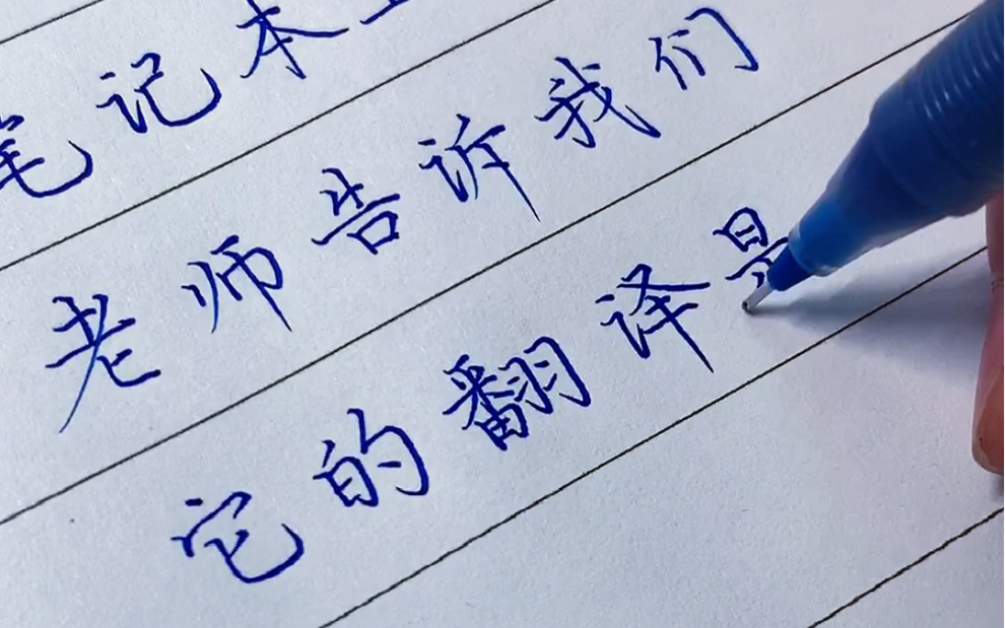 笔记本
老师告诉我们
它的翻译是